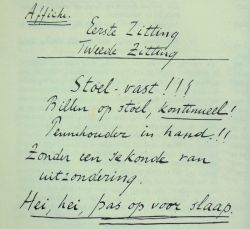 Affiche.
Eerste Zitting
Tweede Zitting
Stoel-vast!!!
Billen op stoel, kontinueel!
Pennehouder in hand!!
Zonder een sekonde van
uitzondering.
Hei, hei, pas op voor slaap.